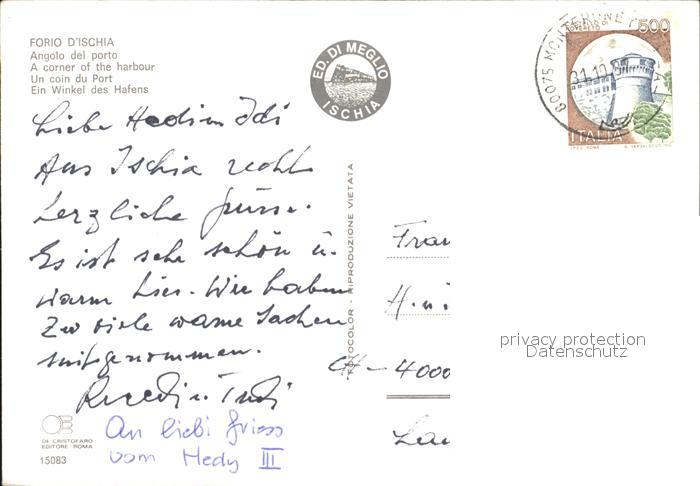 FORIO D'ISCHIA
Angolo del porto
A corner of the harbour
Un coin du Port
Ein Winkel des Hafens
ED. DI MEGLIO
ISCHIA
500
80075 MONTERONE
31.10
ITALIA
Liebe
Aus Ischia recht
herzliche Grüsse.
Es ist sehr schön u.
warm hier. Wir haben
zu viele warme Sachen
mitgenommen.
An liebi Griess
vom Hedy III
FOTOCOLOR - RIPRODUZIONE VIETATA
Fran
CH - 4000
privacy protection
Datenschutz
DI CRISTOFARO
EDITORE - ROMA
15083